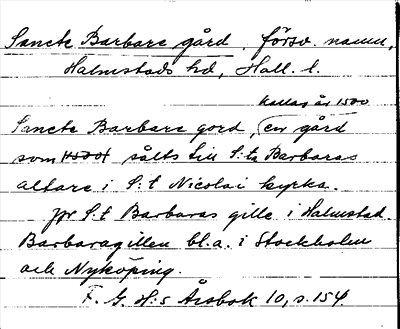 Sancte Barbare gård, försv. namn,
Halmstads hd, Hall. l.
kallas år 1500
Sancte Barbare gord, (en gård
som sålts till S:ta Barbaras
altare i S:t Nicolai kyrka.
Jfr S:t Barbaras gille i Halmstad
Barbaragillen bl.a. i Stockholm
och Nyköping.
F. G. H:s Årsbok 10, s. 154.